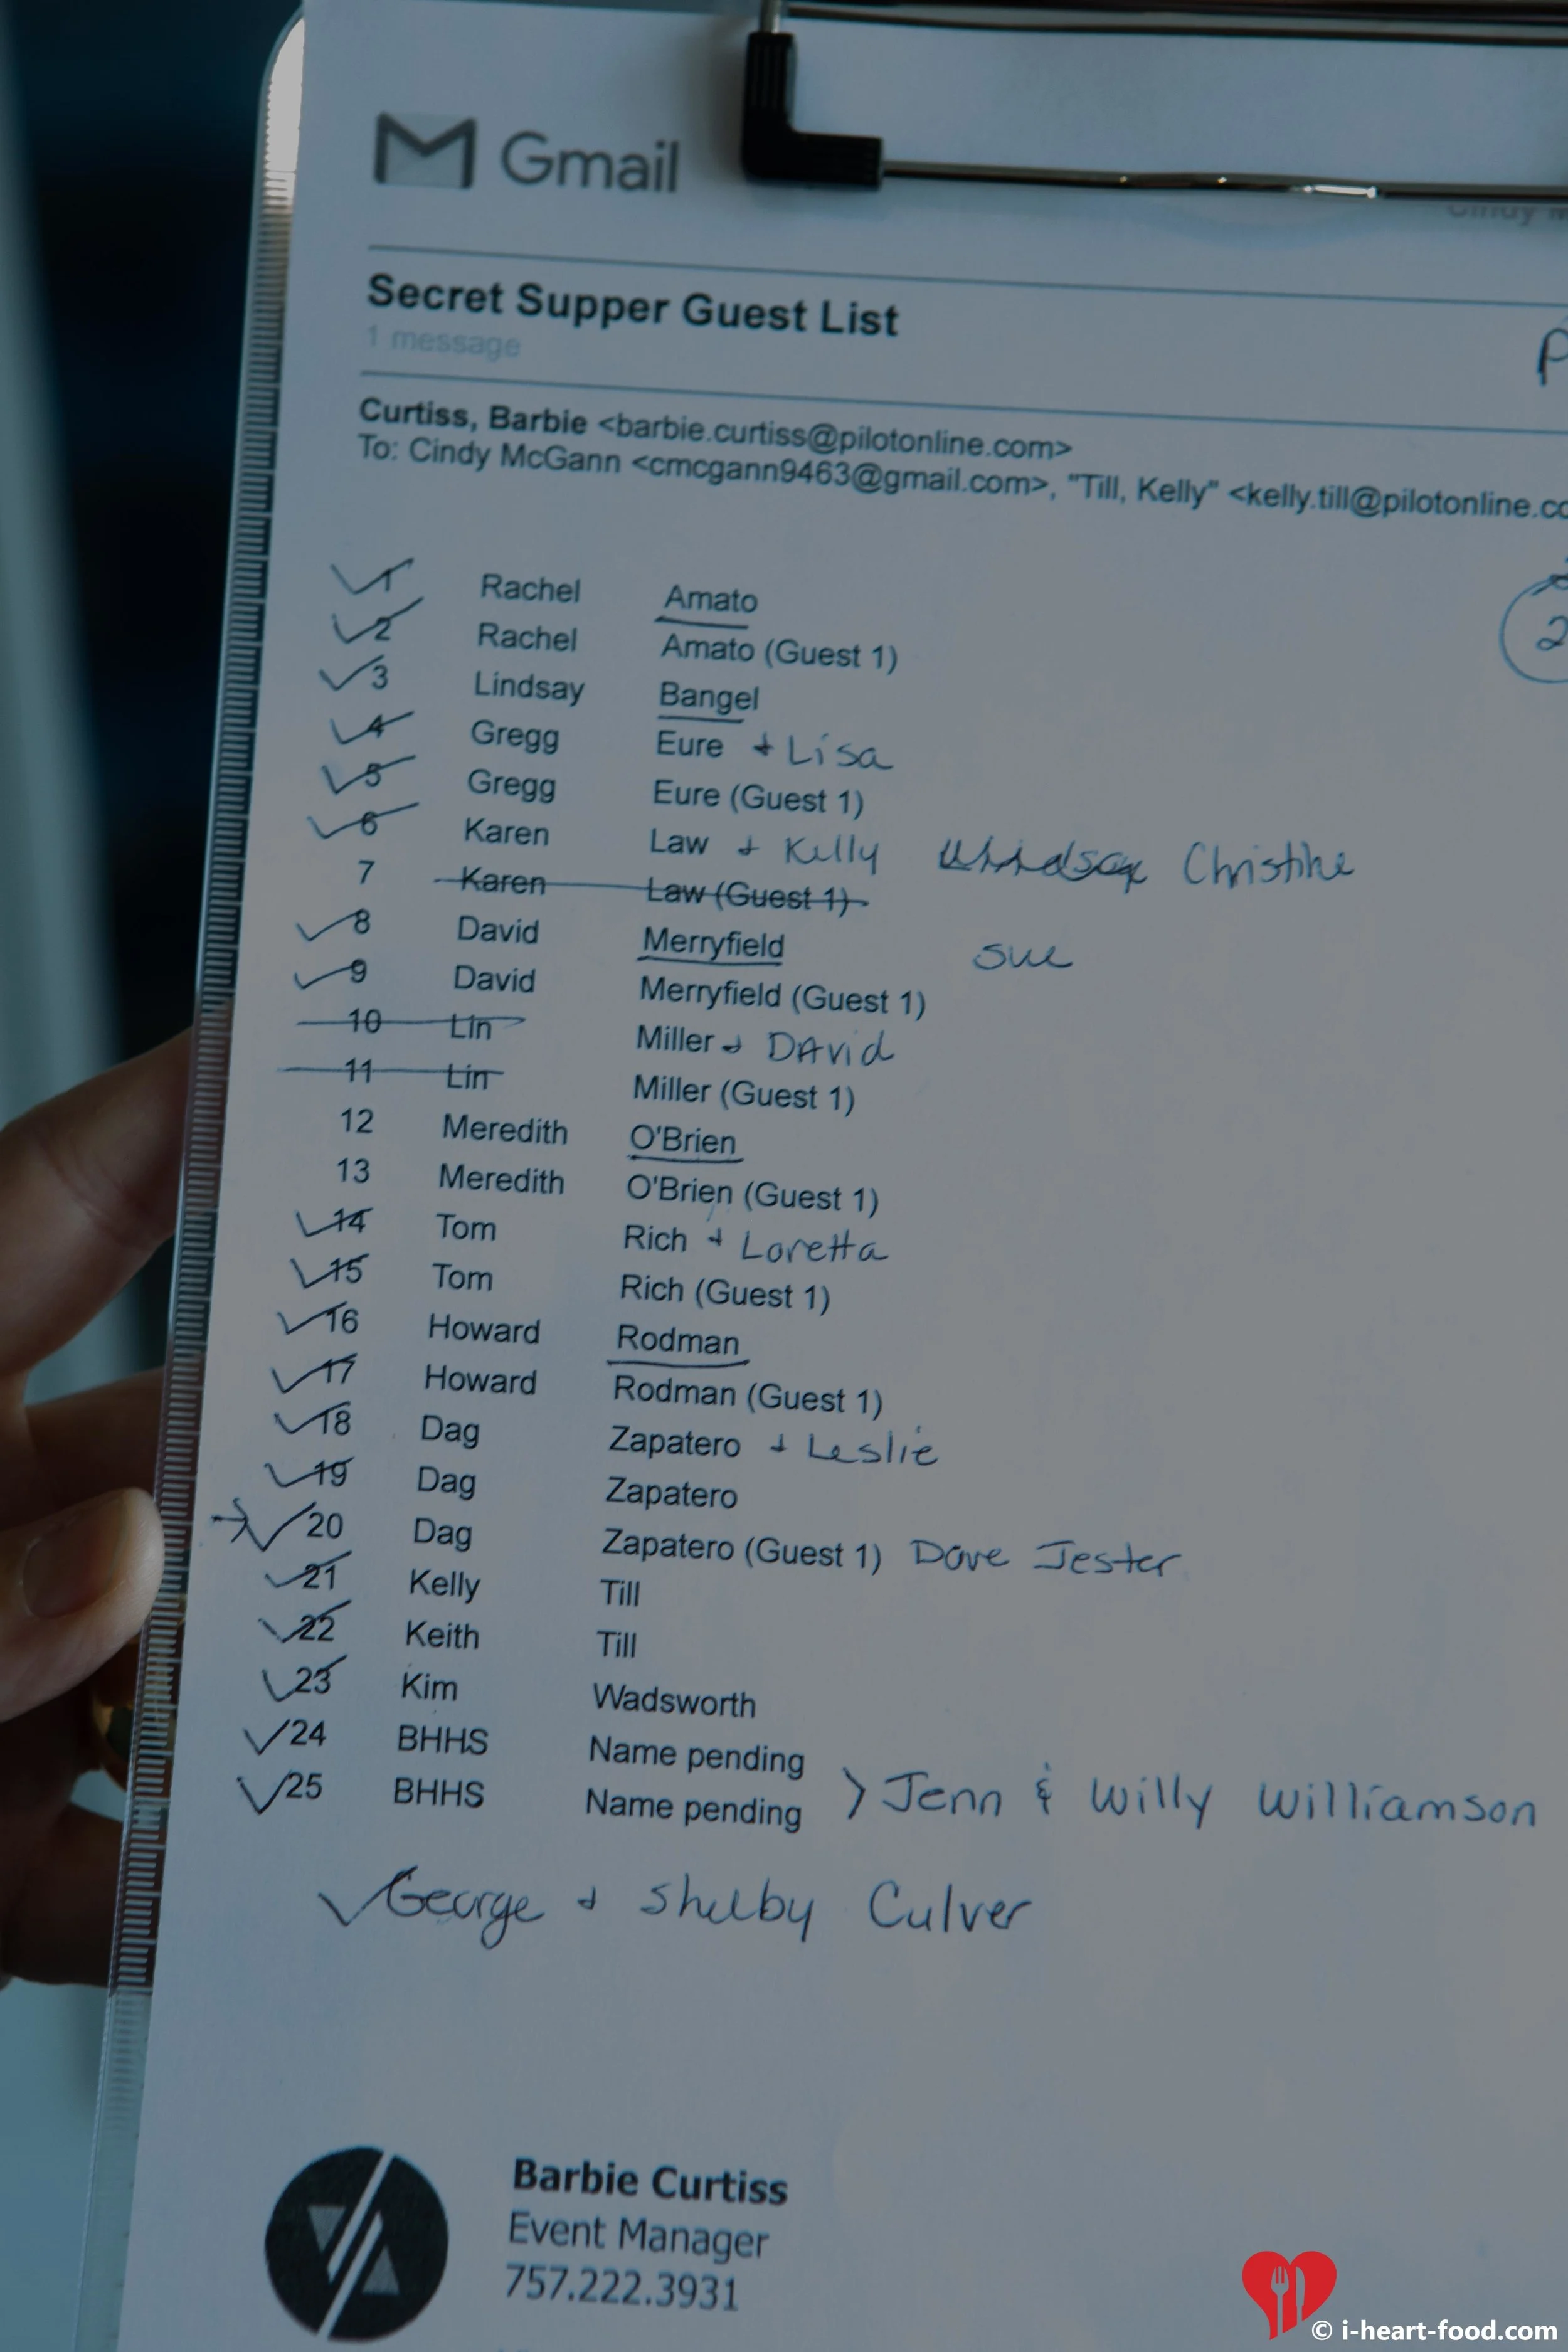 Gmail
Secret Supper Guest List
1 message
P
Curtiss, Barbie <barbie.curtiss@pilotonline.com>
To: Cindy McGann <cmcgann9463@gmail.com>, "Till, Kelly" <kelly.till@pilotonline.co
1 Rachel Amato
2 Rachel Amato (Guest 1)
2
3 Lindsay Bangel
4 Gregg Eure + Lisa
5 Gregg Eure (Guest 1)
6 Karen Law + Kelly Christine
7 Karen Law (Guest 1)
8 David Merryfield Sue
9 David Merryfield (Guest 1)
10 Lin Miller + DAvid
11 Lin Miller (Guest 1)
12 Meredith O'Brien
13 Meredith O'Brien (Guest 1)
14 Tom Rich + Loretta
15 Tom Rich (Guest 1)
16 Howard Rodman
17 Howard Rodman (Guest 1)
18 Dag Zapatero + Leslie
19 Dag Zapatero
20 Dag Zapatero (Guest 1) Dave Jester
21 Kelly Till
22 Keith Till
23 Kim Wadsworth
24 BHHS Name pending
25 BHHS Name pending > Jenn & Willy Williamson
George + Shelby Culver
Barbie Curtiss
Event Manager
757.222.3931
© i-heart-food.com